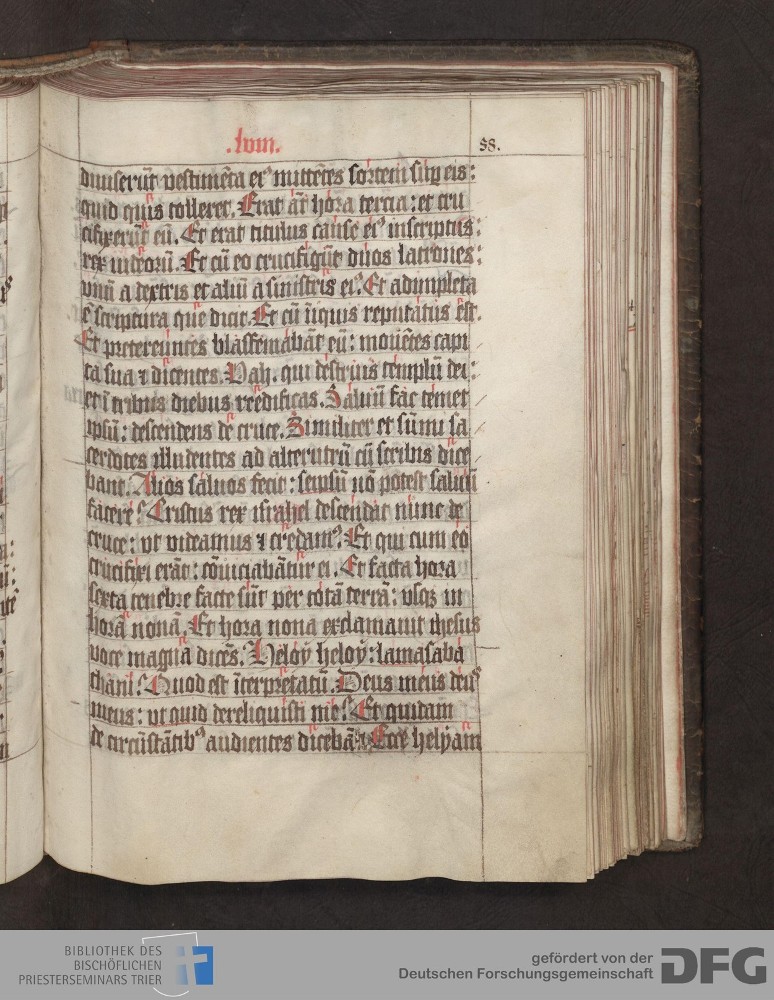 .lviii.
58.
diuiserūt vestimēta eiꝰ mittētes sortem sup̲ eis:
quid quis tolleret. Erat āt hora tercia: et cru
cifixerūt eū. Et erat titulus cause eiꝰ inscriptus:
rex iudeorū. Et cū eo crucifigūt duos latrones:
vnū a dextris et aliū a sinistris eiꝰ. Et adimpleta
ē scriptura que dicit. Et cū īiquis reputatus est.
Et pretereuntes blasfemabāt eū: mouētes capi
ta sua ⁊ dicentes. Vah. qui destruis templū dei:
et ī tribus diebus reedificas. Saluū fac temet
ipsū: descendens de cruce. Similiter et sūmi sa
cerdotes illudentes ad alterutrū cū scribis dice
bant. Alios saluos fecit: seipsū nō potest saluū
facere. Cristus rex israhel descendat nunc de
cruce: vt videamus ⁊ credamꝰ. Et qui cum eo
crucifixi erāt: cōuiciabātur ei. Et facta hora
sexta tenebre facte sūt per totā terrā: vsqꝫ in
horā nonā. Et hora nona exclamauit ihesus
voce magna dicēs. Heloy heloy: lamasaba
thani. Quod est īterpretatū. Deus meus deꝰ
meus: vt quid dereliquisti me. Et quidam
de circūstātibꝰ audientes dicebāt. Ecce helyam
BIBLIOTHEK DES
BISCHÖFLICHEN
PRIESTERSEMINARS TRIER
gefördert von der
Deutschen Forschungsgemeinschaft
DFG